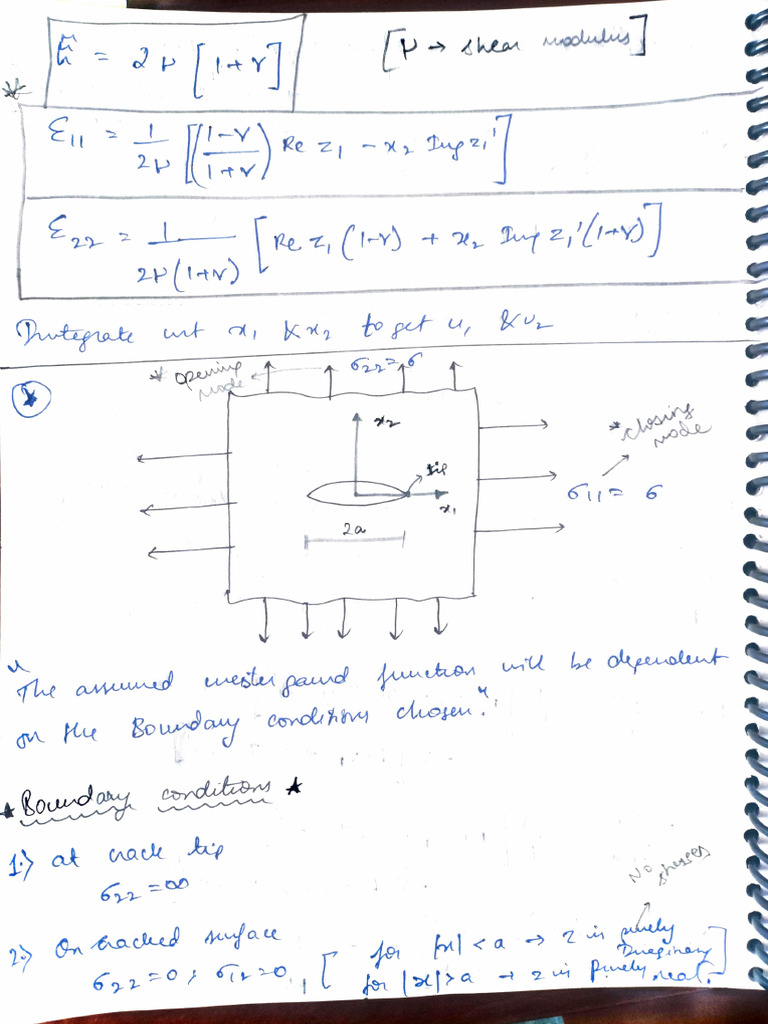 E = 2μ [1+ν] [μ → shear modulus]
ε11 = 1/2μ [(1-ν/1+ν) Re z1 - x2 Img z1']
ε22 = 1/2μ(1+ν) [Re z1 (1-ν) + x2 Img z1'(1+ν)]
Integrate wrt x1 & x2 to get u1 & u2
* opening mode
σ22 = σ
x2
tip
x1
2a
* closing mode
σ11 = σ
"The assumed westergaurd function will be dependent
on the Boundary conditions chosen."
★ Boundary conditions ★
1.) at crack tip
σ22 = ∞
No stresses
2.) On cracked surface
σ22 = 0; σ12 = 0, [for |x| < a → z is purely Imaginary
for |x| > a → z is purely real.]